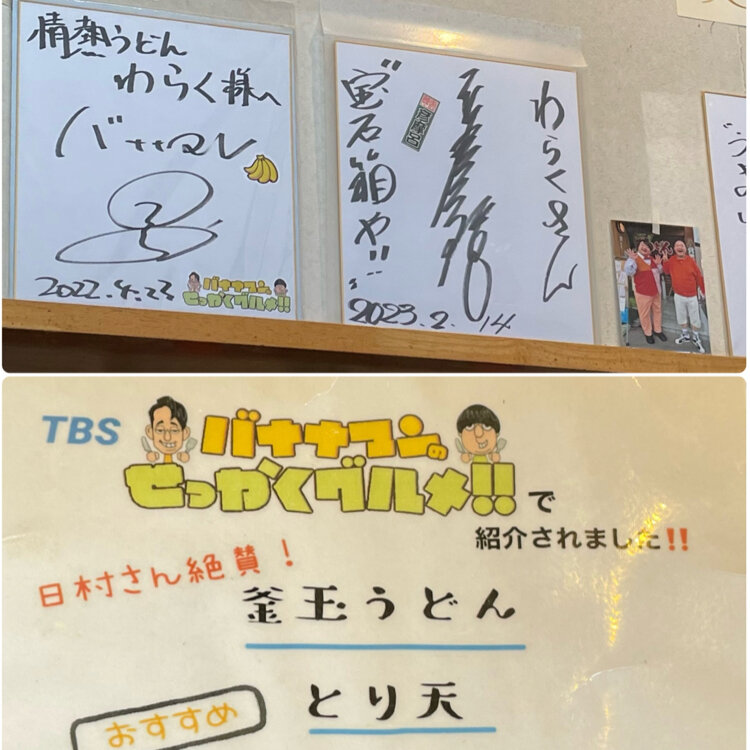 情熱うどん
わらく様へ
バナナマン
2022.4.23
バナナマンの
せっかくグルメ!!
わらくさん
"宝石箱や"!!
2023.2.14
TBS
バナナマンの
せっかくグルメ!!で
紹介されました!!
日村さん絶賛！
釜玉うどん
とり天
おすすめ